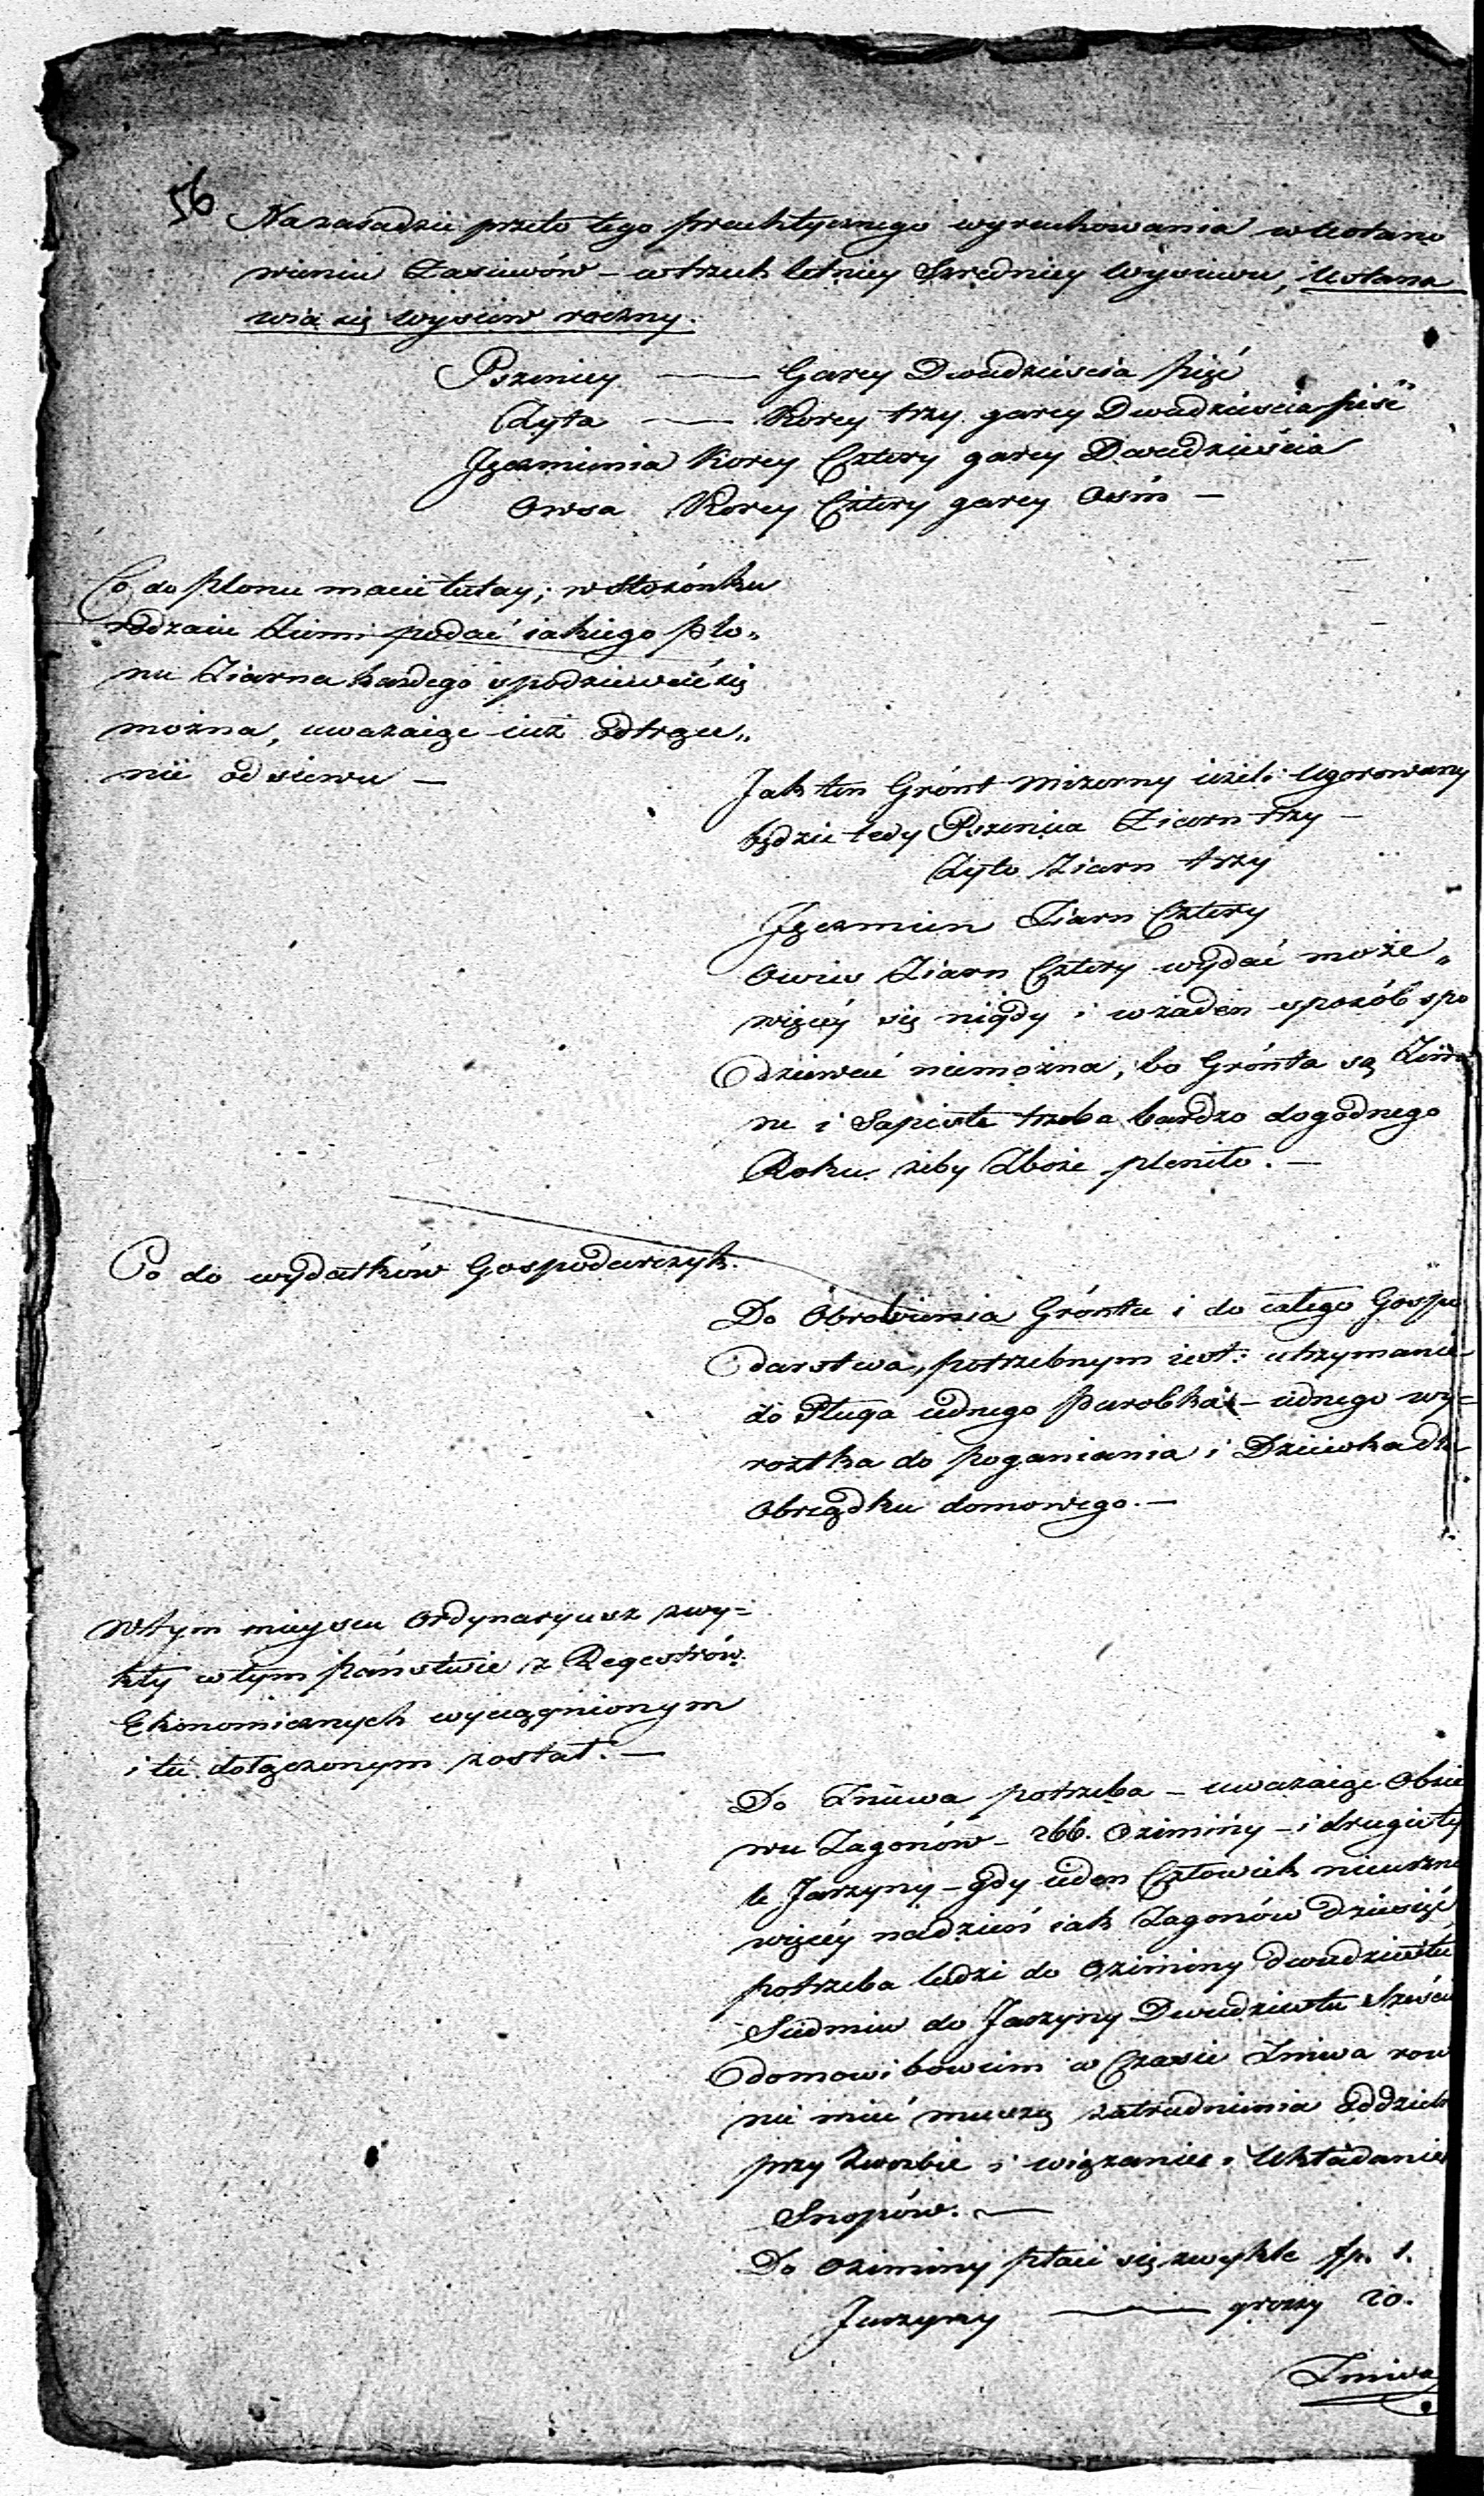 56
Na zasadzie przeto tego praktycznego wyrachowania w Ustano
wieniu Zasiewów – w trzech letniey Szredniey Wysiewu, Ustana
wia się Wysiew roczny.
Pszenicy — Garcy Dwadzieścia pięć
Żyta — Korcy trzy garcy Dwadzieścia pięć
Jęczmienia Korcy Cztery garcy Dwadzieścia
Owsa Korcy Cztery garcy Osm –
Co do Plonu macie tutay; w Stosónku
rodzaiu Ziemi podać iakiego plo„
nu Ziarna każdego spodziewać się
można, uważaiąc iuż odtrące„
nie od siewu —
Jak ten Grónt mizerny ieżeli Ugorowany
będzie tedy Pszenica Ziarn trzy –
Żyto Ziarn trzy
Jęczmien Ziarn Cztery
Owies Ziarn Cztery wydać może„
więcéy się nigdy i w żaden sposób spo
dziewać niemożna, bo Grónta są Zim
ne i Sapiste trzeba bardzo dogodnego
Roku żeby Zboże pleniło. —
Co do wydatków Gospodarczych.
Do Obrobienia Gróntu i do całego Gospo
darstwa, potrzebnym iest: utrzymanie
do Pługa iednego parobka – iednego wy=
rostka do poganiania i Dziewka dla
Obrządku domowego. —
W tym mieyscu Ordynaryusz zwy=
kły w tym państwie z Regestrów
Ekonomicznych wyciągnionym
i tu dołączonym został. —
Do Żniwa potrzeba – uważaiąc Obsie
wu Zagonów – 266. Oziminy – i drugie ty
le Jarzyny – gdy ieden Człowiek nieuzne
więcéy nadzień iak Zagonów Dziesięć
potrzeba ludzi do Oziminy dwudziestu
Siedmiu do Jarzyny Dwudziestu Sześciu
domowi bowiem w Czasie Żniwa row
nie mieć muszą zatrudnienia oddzieln
przy Zwozbie i wiązaniu i Układaniu
Snopów. —
Do Oziminy płaci się zwykle fp. 1.
Jarzyny — groszy 20.
Żniwa